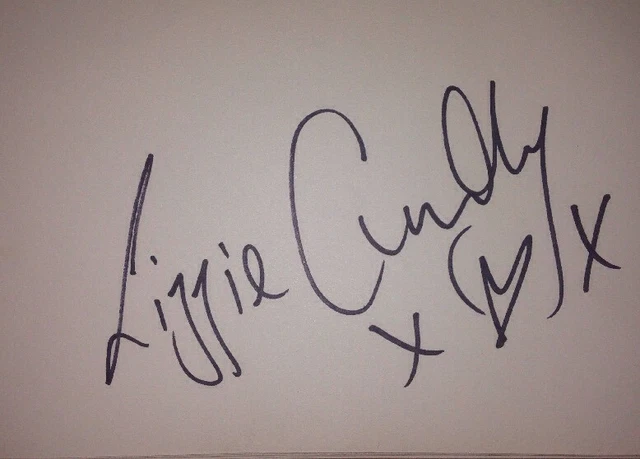 Lizzie Cundy
x (♡) x